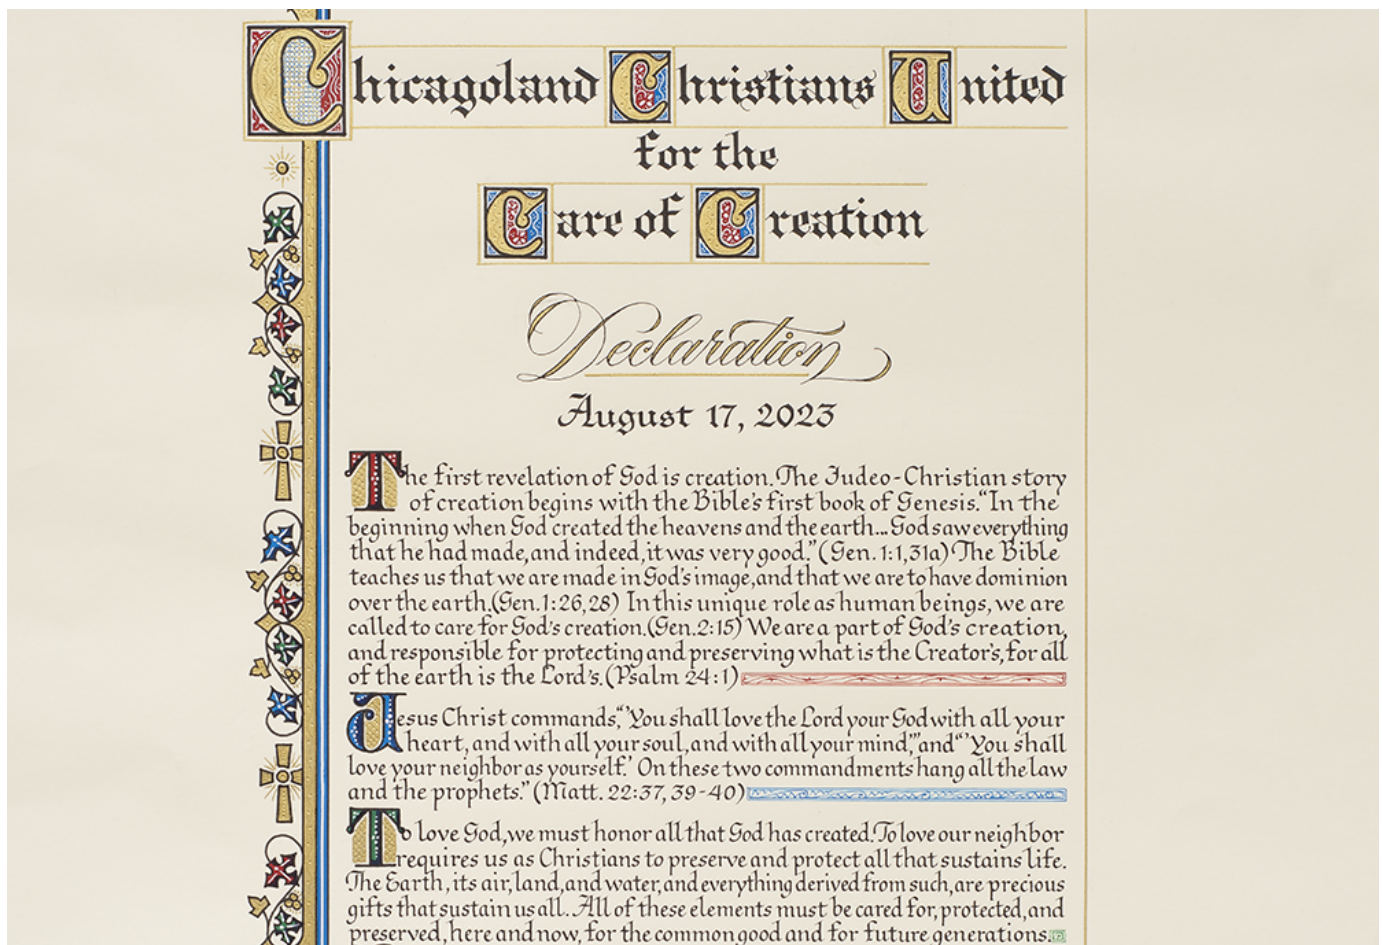 Chicagoland Christians United
for the
Care of Creation
Declaration
August 17, 2023
The first revelation of God is creation. The Judeo-Christian story
of creation begins with the Bible's first book of Genesis. “In the
beginning when God created the heavens and the earth... God saw everything
that he had made, and indeed, it was very good.” (Gen. 1:1,31a) The Bible
teaches us that we are made in God's image, and that we are to have dominion
over the earth. (Gen. 1:26,28) In this unique role as human beings, we are
called to care for God's creation. (Gen. 2:15) We are a part of God's creation,
and responsible for protecting and preserving what is the Creator's, for all
of the earth is the Lord's. (Psalm 24:1)
Jesus Christ commands, “'You shall love the Lord your God with all your
heart, and with all your soul, and with all your mind,'” and “'You shall
love your neighbor as yourself.' On these two commandments hang all the law
and the prophets.” (Matt. 22:37, 39-40)
To love God, we must honor all that God has created. To love our neighbor
requires us as Christians to preserve and protect all that sustains life.
The Earth, its air, land, and water, and everything derived from such, are precious
gifts that sustain us all. All of these elements must be cared for, protected, and
preserved, here and now, for the common good and for future generations.